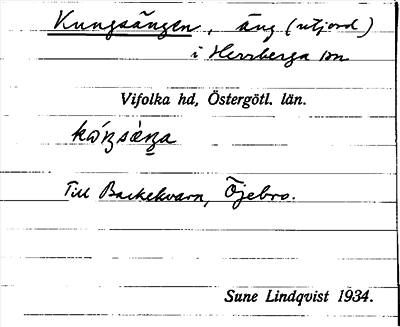 Kungsängen, äng (utjord)
i Herrberga sn
Vifolka hd, Östergötl. län.
Till Backekvarn, Öjebro.
Sune Lindqvist 1934.